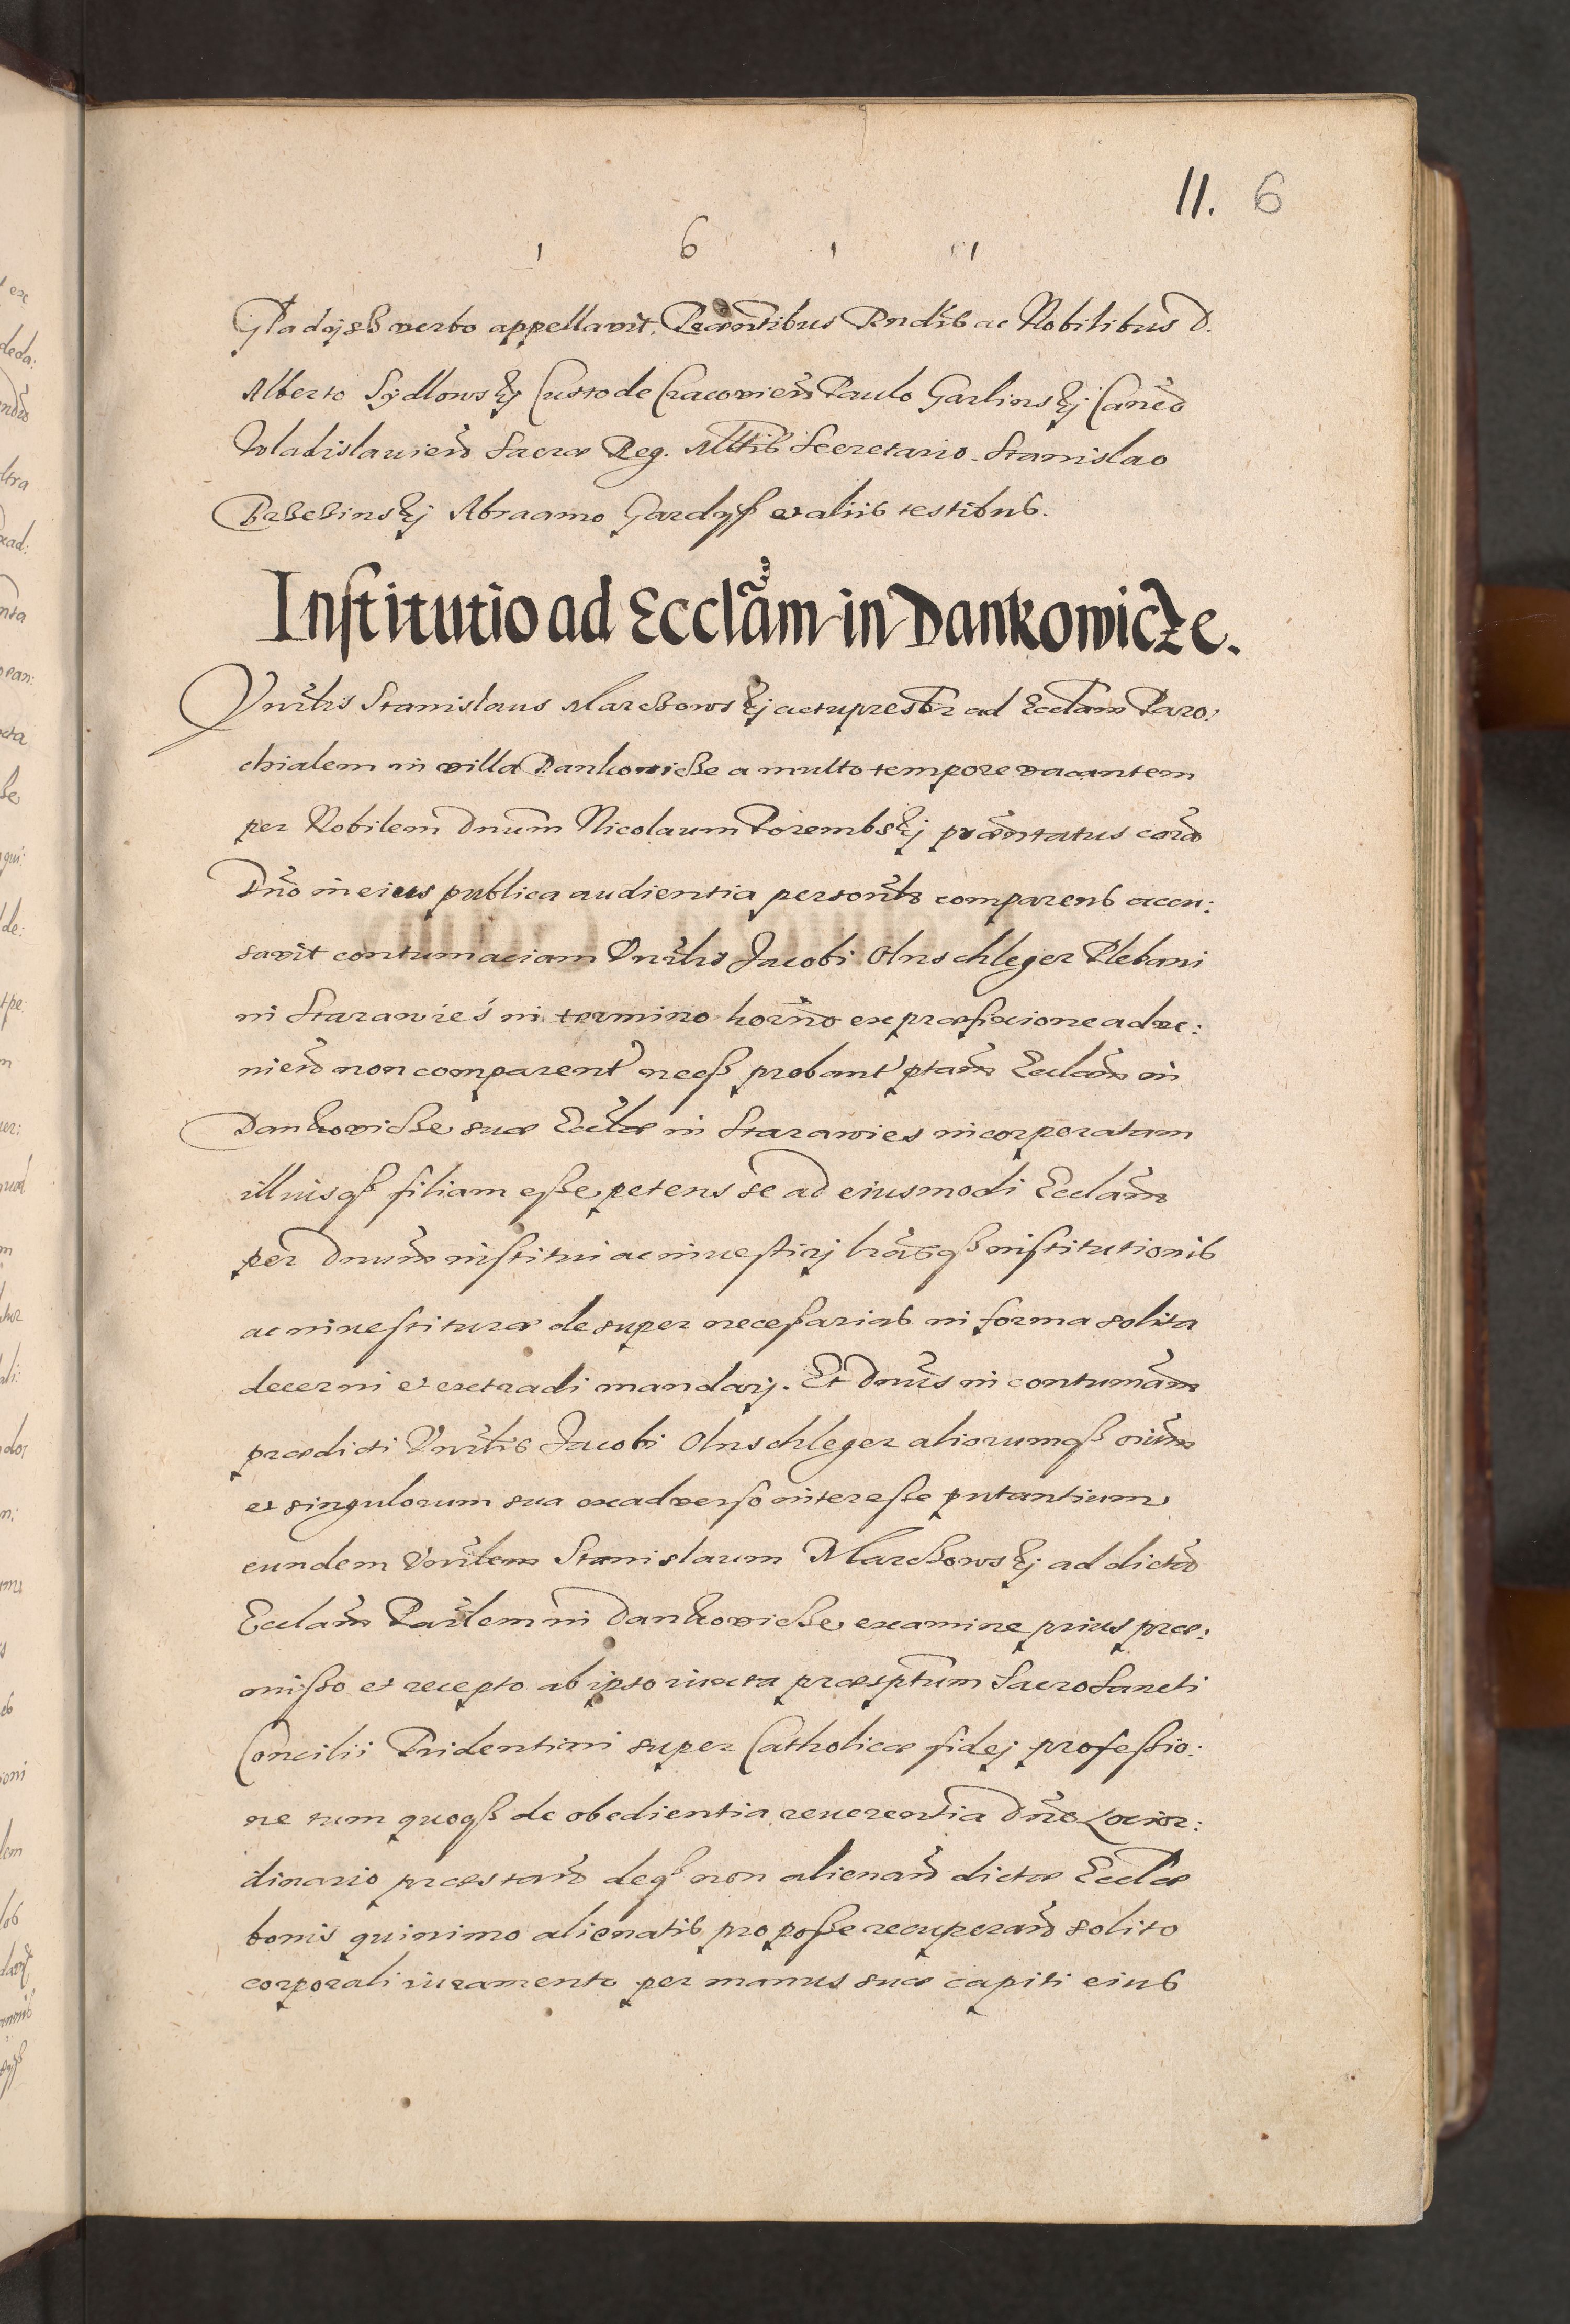 11. 6
1 6 1 1
Gladijsz verbo appellavit. Praesentibus Rndis ac Nobilibus D.
Alberto Sydlowskj Custode Cracovien Paulo Garlinskj Canco
Wladislavien Sacrae Reg. Mttis Secretario. Stanislao
Abraamo Gardysz et aliis testibus.
Institutio ad Ecclam in Dankowicze.
Vnrlis Stanislaus Marchowskj actu presbr ad Ecclam Paro:
chialem in villa Dankowicze a multo tempore vacantem
per Nobilem Dnum Nicolaum Porembskj praentatus cora
Dno in eius publica audientia personlr comparens accu:
savit contumaciam Vnrlis Jacobi Olnschleger Plebani
in Starawieś in termino horno ex praefixione adve:
nien non comparent neqz probant ptam Ecclam in
Dankowicze suae Ecclae in Starawies incorporatam
illiusqz filiam esse, petens se ad eiusmodi Ecclam
per Dnum institui ac investirj lrasqz institutionis
ac investiturae desuper necessarias in forma solita
decerni et extradi mandarj. Et Dnus in contumam
praedicti Vnrlis Jacobi Olnschleger aliorumqz oium
et singulorum sua ex adverso interesse putantium,
eundem Vnrlem Stanislaum Marchowskj ad dicta
Ecclam Parlem in Dankowicze, examine prius prae:
misso et recepto ab ipso iuxta praesptum SacroSancti
Concilii Tridentini super Catholicae fidej professio:
ne tum quoqz de obedientia reverentia Dno Loci or:
dinario praestan deqz non alienan dictae Ecclae
bonis quinimo alienatis pro posse recuperan solito
corporali iuramento per manus suae capiti eius